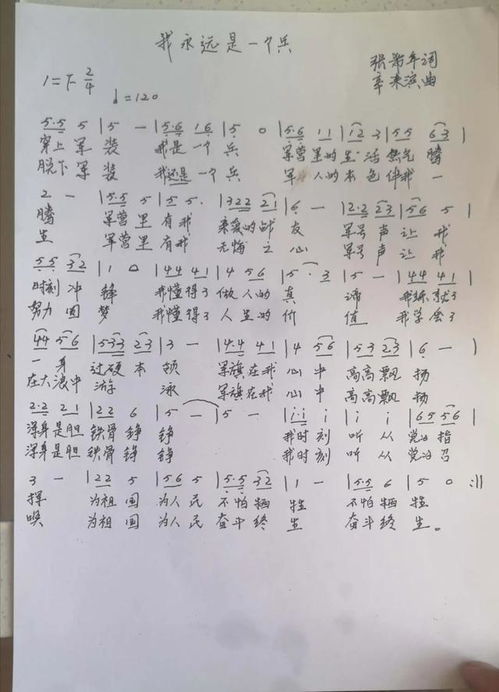 我永远是一个兵
张 车词
1=F 2/4 ♩=120 辛来滨曲
5·5 5 | 5 - | 5·6 16 | 5 0 | 5·6 11 | 12 3 | 55 63 |
穿上军装 我是一个兵 军营里的生活热气腾
脱下军装 我还是一个兵 军人的本色伴我一
2 - | 5·5 5 | 5 5· | 322 21 | 6 - | 2·2 23 | 56 5 |
腾 军营里有我 亲爱的战友 军号声让我
生 军营里有我 无悔之心 军号声让我
55 32 | 1 0 | 44 41 | 4 56 | 5· 3 | 5 - | 44 41 |
时刻冲锋 我懂得了做人的真谛 我练就了
努力圆梦 我懂得了人生的价值 我学会了
44 56 | 533 23 | 3 - | 4·4 41 | 4 56 | 53 23 | 6 - |
一身过硬本领 军旗在我心中高高飘扬
在大浪中游泳 军旗在我心中高高飘扬
2·2 21 | 22 6 | 5 - | 5 - | i·i i | i i | 65 56 |
浑身是胆铁骨铮铮 我时刻听从党的指
浑身是胆铁骨铮铮 我时刻听从党的召
3 - | 22 5 | 56 5 | 5·5 32 | 1 - | 5·5 6 | 5 0 :||
挥 为祖国为人民不怕牺牲 不怕牺牲
唤 为祖国为人民奋斗终生 奋斗终生。